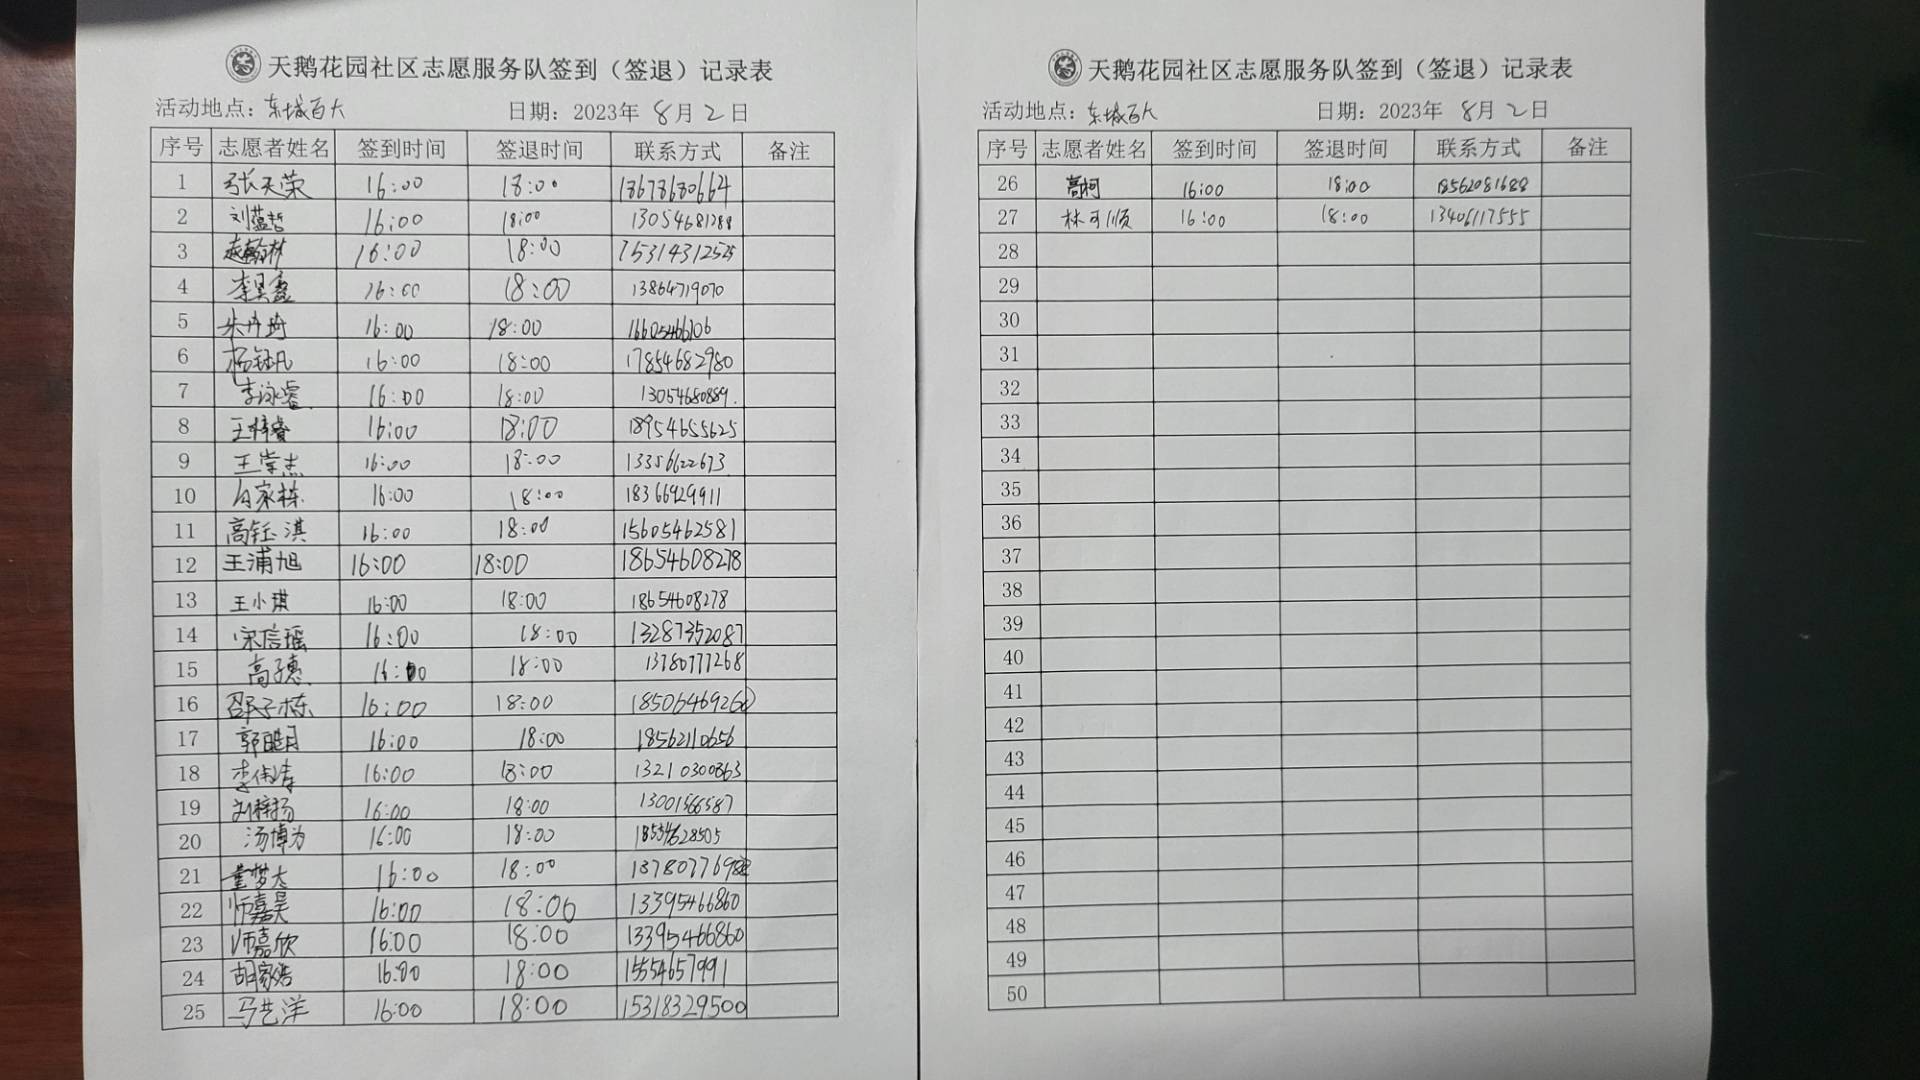 天鹅花园社区志愿服务队签到（签退）记录表
活动地点：东城百大 日期：2023年 8月 2日
序号 志愿者姓名 签到时间 签退时间 联系方式 备注
1 张天荣 16:00 18:00 18678680664
2 刘蕴哲 16:00 18:00 13054681288
3 16:00 18:00 15314312525
4 李昊鑫 16:00 18:00 13864719070
5 朱丹琦 16:00 18:00 16605466106
6 杨钰凡 16:00 18:00 17854682980
7 李泳睿 16:00 18:00 13054680889
8 16:00 18:00 18954655625
9 王崇杰 16:00 18:00 13356622673
10 白家栋 16:00 18:00 18366929911
11 高钰淇 16:00 18:00 15605462581
12 王浦旭 16:00 18:00 18654608278
13 王小琪 16:00 18:00 18654608278
14 宋信瑶 16:00 18:00 13287352087
15 高子惠 16:00 18:00 13780777268
16 邵子栋 16:00 18:00 18506469260
17 郭皓月 16:00 18:00 18562110656
18 16:00 18:00 13210300863
19 刘梓扬 16:00 18:00 13001566587
20 汤博为 16:00 18:00 18554628505
21 16:00 18:00
22 师嘉昊 16:00 18:00 13395466860
23 师嘉欣 16:00 18:00 13395466860
24 胡家皓 16:00 18:00 15554657991
25 马艺洋 16:00 18:00 15318329500
天鹅花园社区志愿服务队签到（签退）记录表
活动地点：东城百大 日期：2023年 8月 2日
序号 志愿者姓名 签到时间 签退时间 联系方式 备注
26 高柯 16:00 18:00 18562081688
27 林可顺 16:00 18:00 13406117555
28
29
30
31
32
33
34
35
36
37
38
39
40
41
42
43
44
45
46
47
48
49
50